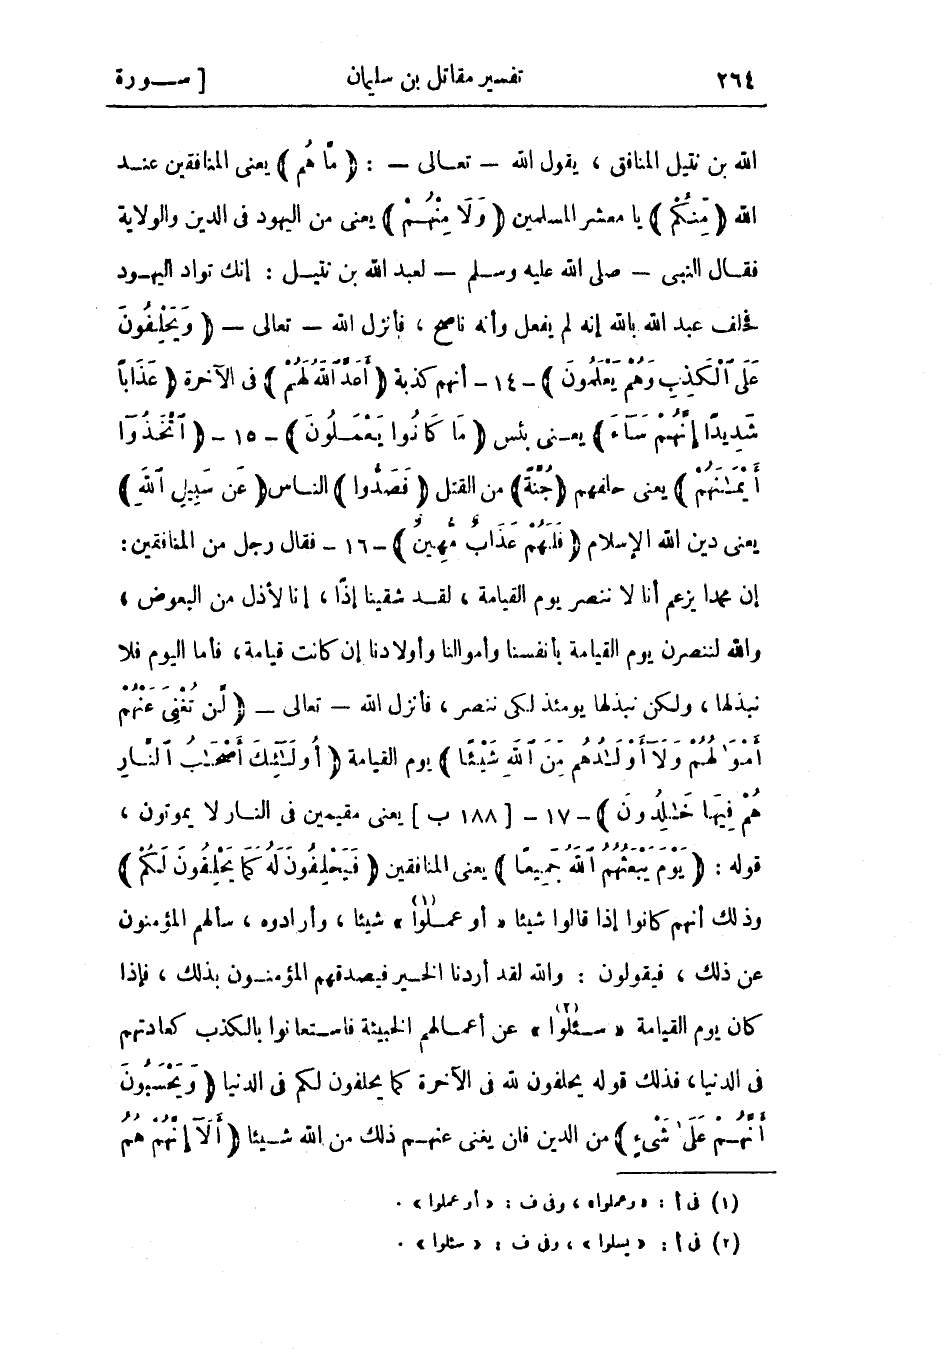 ٢٦٤ تفسير مقاتل بن سليمان [ ســورة
الله بن نتيل المنافق ، يقول الله — تعـالى — : ( مَّا هُم ) يعنى المنافقين عنـد
الله ( مِّنكُمْ ) يا معشر المسلمين ( وَلَا مِنْهُـمْ ) يعنى من اليهود فى الدين والولاية
فقـال النبى — صلى الله عليه وسـلم — لعبد الله بن نتيـل : إنك تواد اليهـود
فحلف عبد الله بالله إنه لم يفعل وأنه ناصح ، فأنزل الله — تعالى — ( وَيَحْلِفُونَ
عَلَى ٱلْكَذِبِ وَهُمْ يَعْلَمُونَ ) - ١٤ - أنهم كذبة ( أَعَدَّ ٱللَّهُ لَهُمْ ) فى الآخرة ( عَذَابًا
شَدِيدًا إِنَّهُمْ سَآءَ ) يعـنى بئس ( مَا كَانُوا يَعْمَـلُونَ ) - ١٥ - ( ٱتَّخَذُوٓا
أَيْمَـٰنَهُمْ ) يعنى حلفهم ( جُنَّةً ) من القتل ( فَصَدُّوا ) النـاس ( عَن سَبِيلِ ٱللَّهِ )
يعنى دين الله الإسلام ( فَلَهُمْ عَذَابٌ مُّهِينٌ ) - ١٦ - فقال رجل من المنافقين :
إن محمدا يزعم أنا لا ننصر يوم القيامة ، لقـد شقينا إذًا ، إنا لأذل من البعوض ،
والله لننصرن يوم القيامة بأنفسنا وأموالنا وأولادنا إن كانت قيامة ، فأما اليوم فلا
نبذلها ، ولكن نبذلها يومئذ لكى ننصر ، فأنزل الله — تعالى — ( لَّن تُغْنِىَ عَنْهُمْ
أَمْوَٰلُهُمْ وَلَآ أَوْلَـٰدُهُم مِّنَ ٱللَّهِ شَيْـًٔا ) يوم القيامة ( أُولَـٰٓئِكَ أَصْحَـٰبُ ٱلنَّـارِ
هُمْ فِيهَا خَـٰلِدُونَ ) - ١٧ - [ ١٨٨ ب ] يعنى مقيمين فى النـار لا يموتون ،
قوله : ( يَوْمَ يَبْعَثُهُمُ ٱللَّهُ جَمِيعًا ) يعنى المنافقين ( فَيَحْلِفُونَ لَهُ كَمَا يَحْلِفُونَ لَكُمْ )
وذلك أنهم كانوا إذا قالوا شيئا « أو عمـلوا » (١) شيئا ، وأرادوه ، سألهم المؤمنون
عن ذلك ، فيقولون : والله لقد أردنا الخـير فيصدقهم المؤمنـون بذلك ، فإذا
كان يوم القيامة « سـئلوا » (٢) عن أعمـالهم الخبيثة فاسـتعانوا بالكذب كعادتهم
فى الدنيا ، فذلك قوله يحلفون لله فى الآخرة كما يحلفون لكم فى الدنيا ( وَيَحْسَبُونَ
أَنَّهُـمْ عَلَىٰ شَىْءٍ ) من الدين فان يغنى عنهـم ذلك من الله شـيئا ( أَلَآ إِنَّهُمْ هُمُ
(١) فى أ : « وعملوا » ، وفى ف : « أو عملوا » .
(٢) فى أ : « يسلوا » ، وفى ف : « سئلوا » .